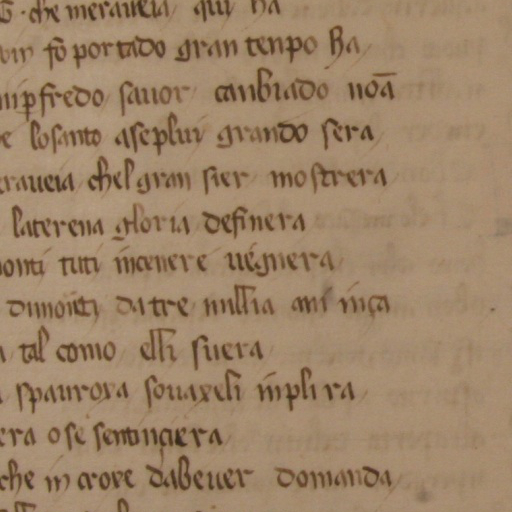 che meraveia qui ha
vin fo portado gran tenpo ha
fredo savor canbiado noā
e lo santo aseplui grando sera
eraveia chel gran sier mostrera
laterena gloria definera
onti tuti incenere vegnera
da tre millia ani inça
tal como elli fuera
spaurora sovaxeli inplira
era o se sentençiera
che in croxe dabever domanda